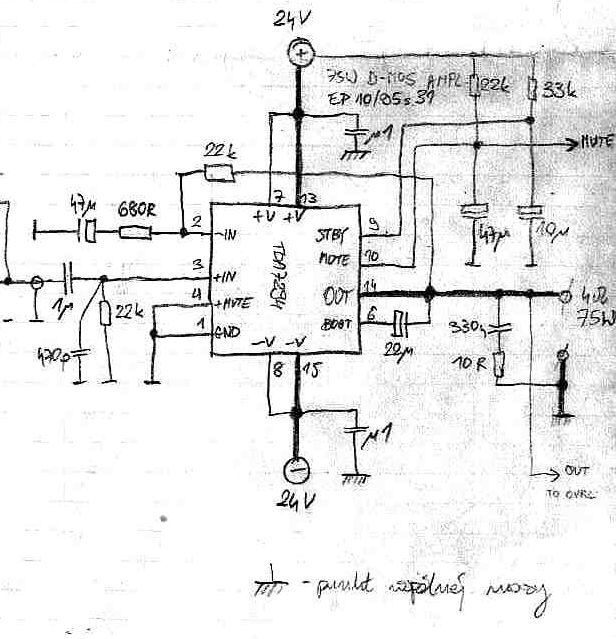 24V
75W D-MOS AMPL
EP 10/05 s 31
22k
33k
μ1
MUTE
22k
7 13
+V +V
47μ
680R
2
-IN
STBY
9
47μ
10μ
MUTE
10
3
+IN
TDA7294
1μ
22k
4
+MUTE
OUT
14
4Ω
75W
1
GND
BOOT
6
470p
22μ
330n
10R
-V -V
8 15
μ1
24V
OUT
TO OVRL
- punkt wspólnej masy